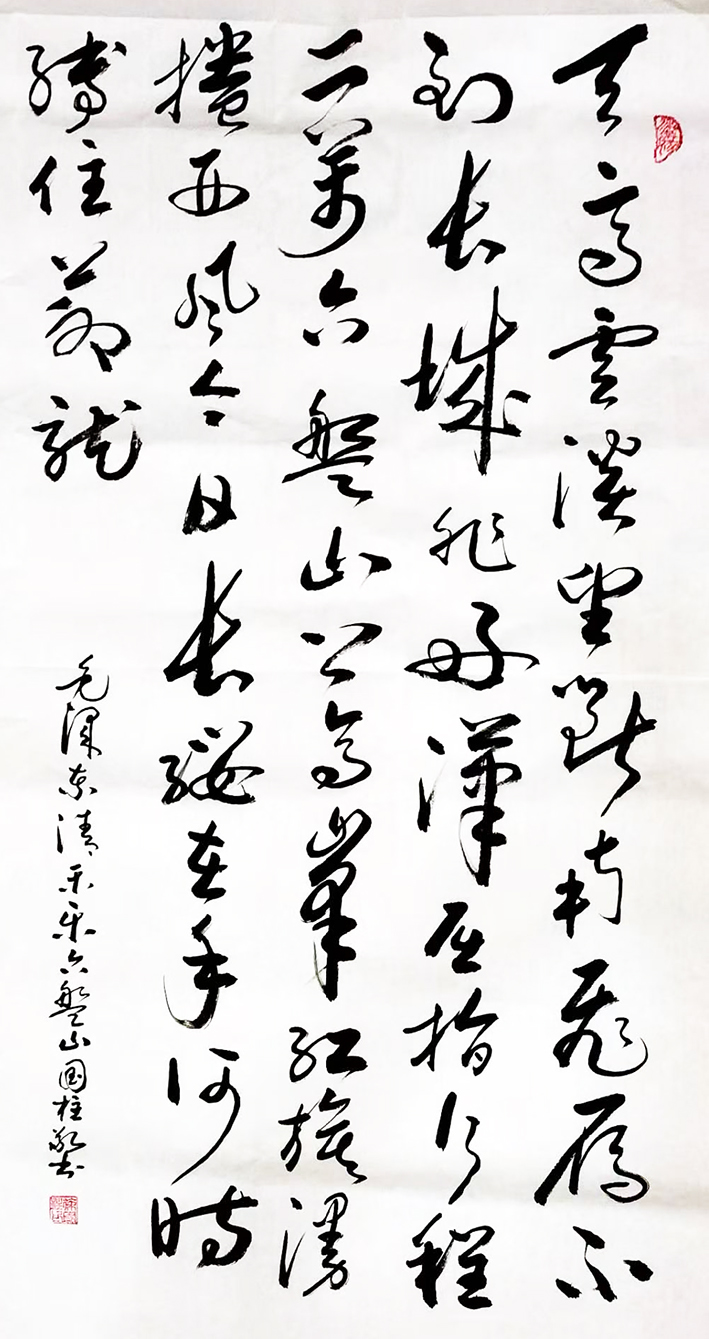 天高雲淡望斷南飛雁不
到長城非好漢屈指行程
二萬六盤山上高峯紅旗漫
捲西風今日長纓在手何時
縛住蒼龍
毛澤東清平樂六盤山國柱敬書